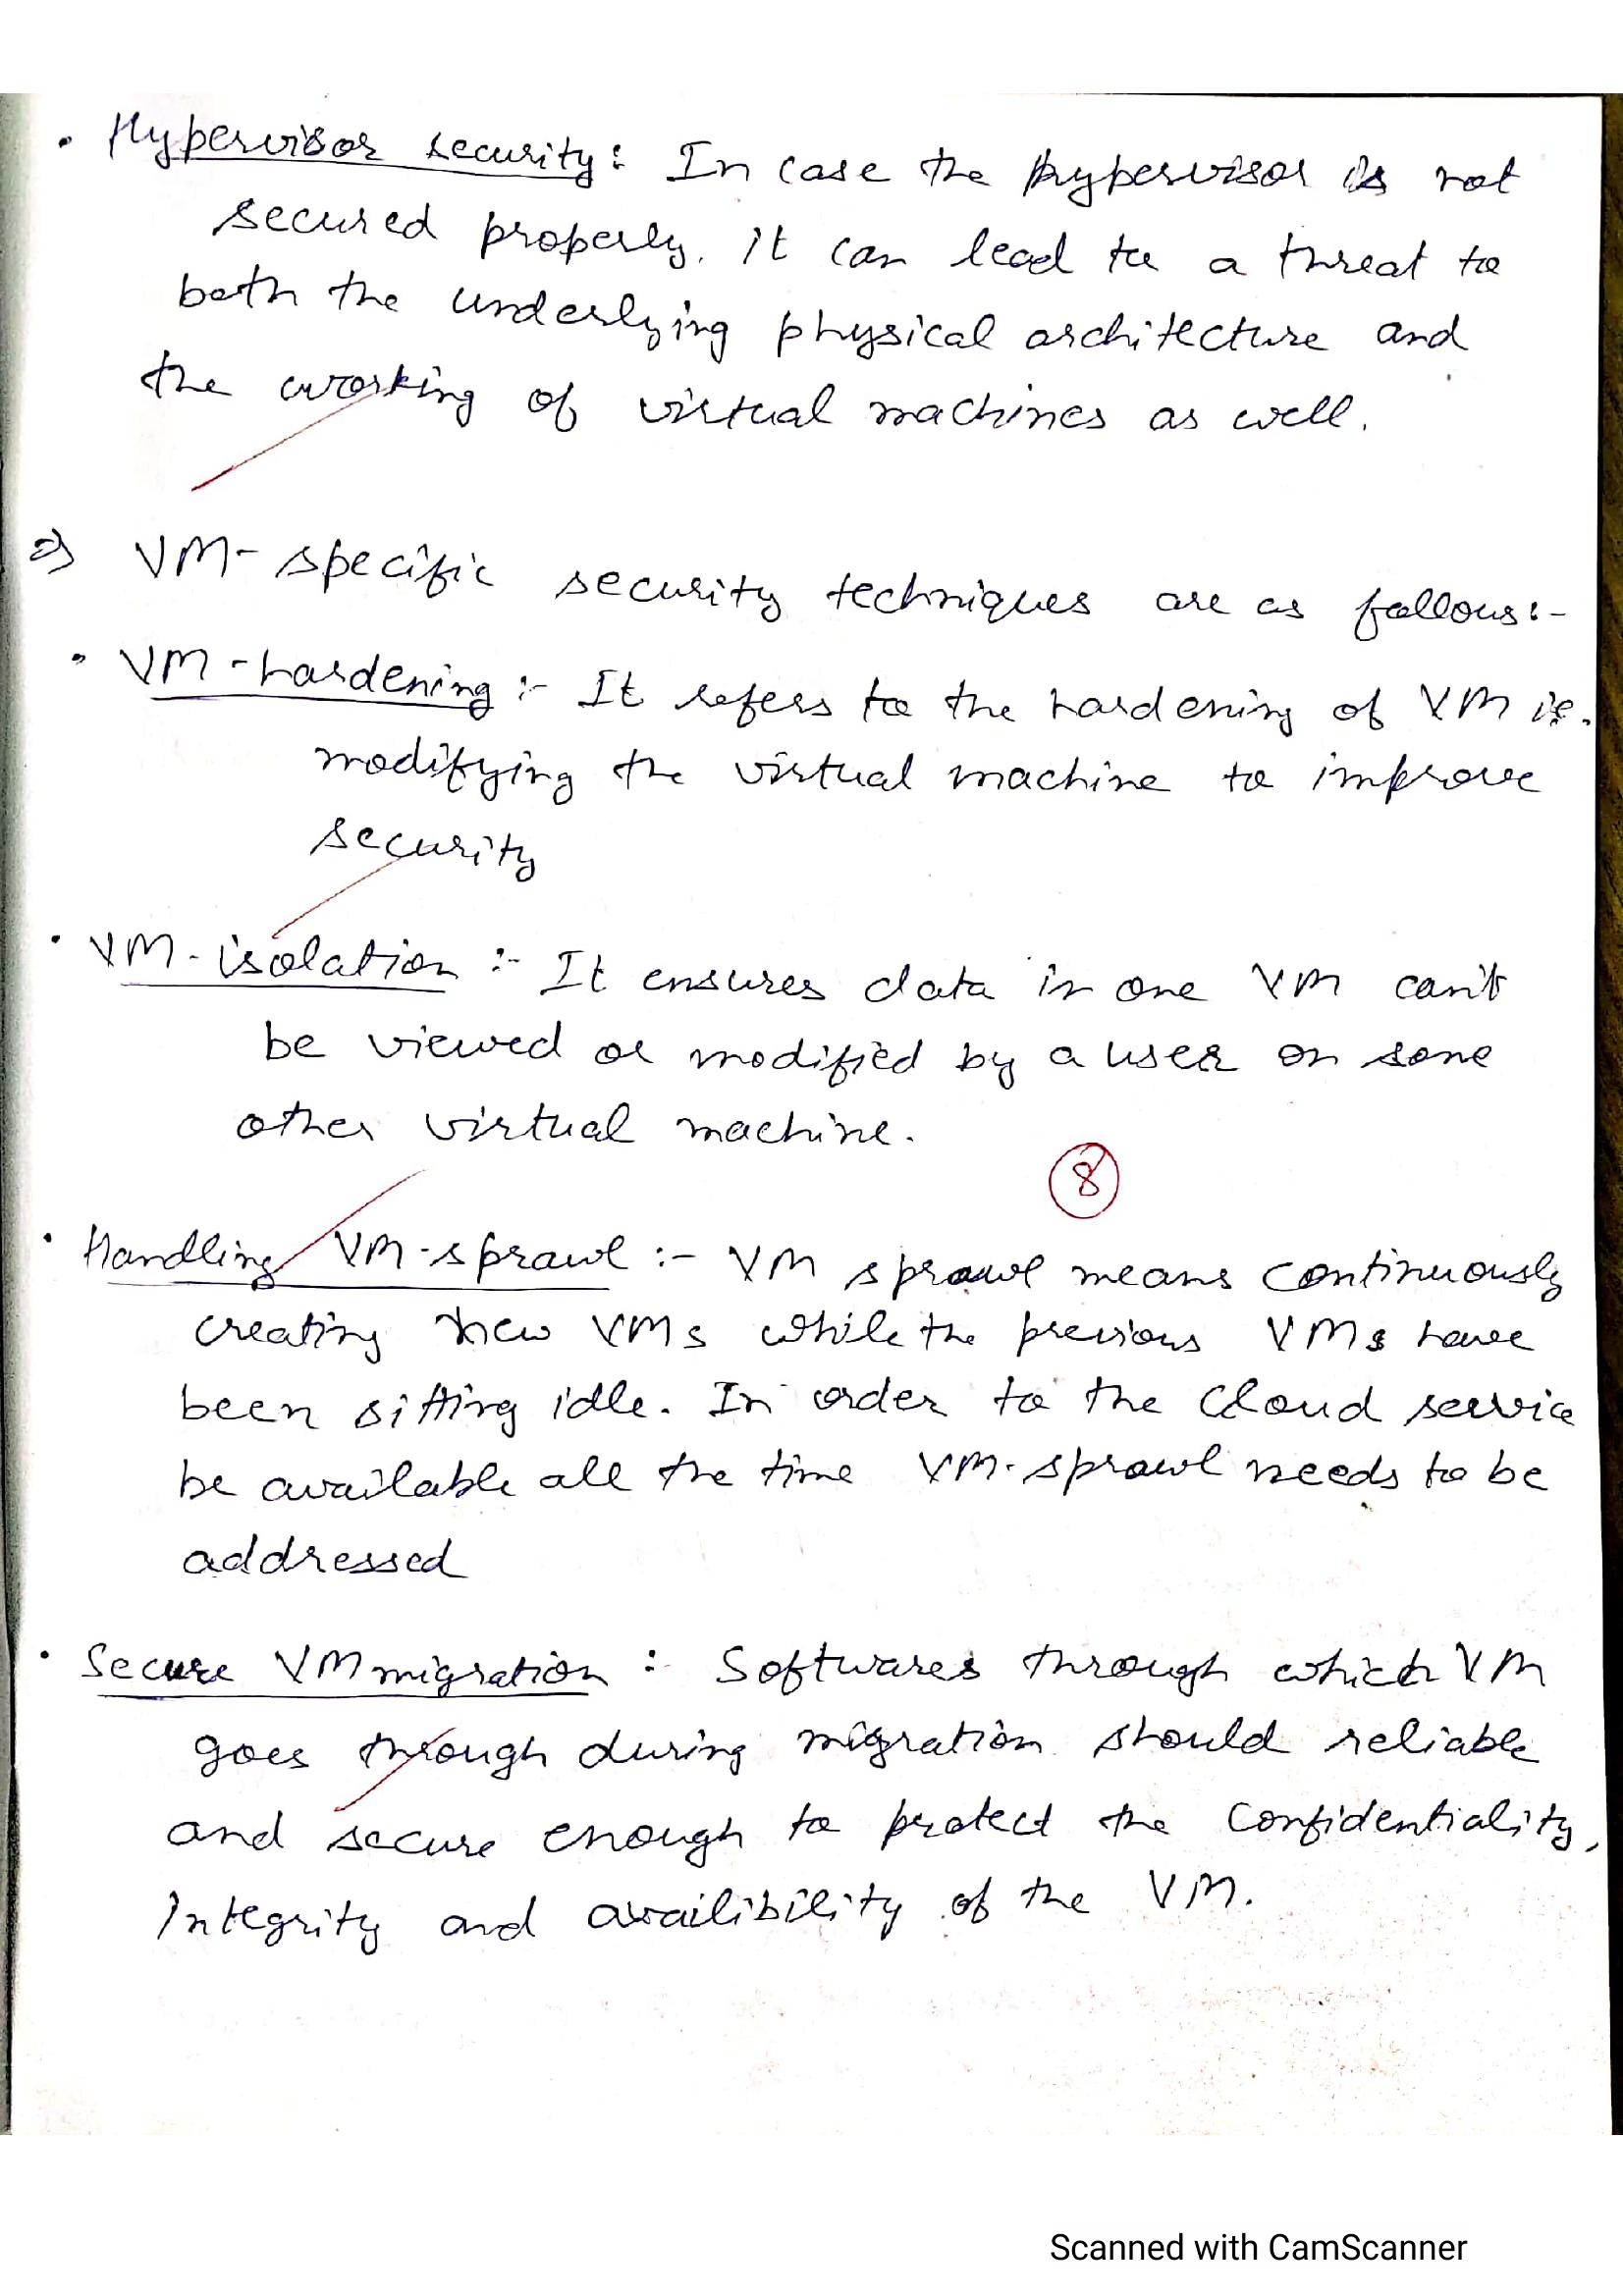 • Hypervisor security: In case the hypervisor is not
secured properly, it can lead to a threat to
both the underlying physical architecture and
the working of virtual machines as well.
⇒ VM-specific security techniques are as follows:-
• VM-hardening :- It refers to the hardening of VM ie.
modifying the virtual machine to improve
security
• VM-isolation :- It ensures data in one VM can't
be viewed or modified by a user on some
other virtual machine.
8
• Handling VM-sprawl :- VM sprawl means continuously
creating new VMs while the previous VMs have
been sitting idle. In order to the Cloud service
be available all the time VM-sprawl needs to be
addressed
• Secure VM migration : Softwares through which VM
goes through during migration should reliable
and secure enough to protect the Confidentiality,
Integrity and availibility of the VM.
Scanned with CamScanner